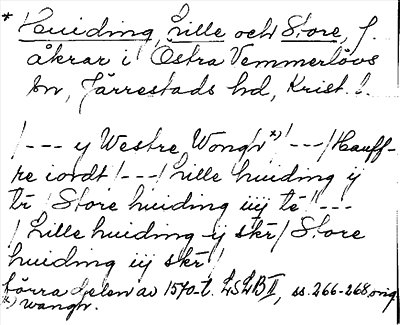 * Huiding, Lille och Store, f.
åkrar i Östra Vemmerlövs
sn, Järrestads hd, Krist. l.
/--- y Westre Wongr *) /---/ Hauff-
re iordt /---/ Lille huiding ÿ
tr / Store huiding iiij te /---
/ Lille huiding ÿ skr / Store
huiding iij skr /
Förra delen av 1570-t. LSLB II, ss. 266-268, orig
*) wangr.